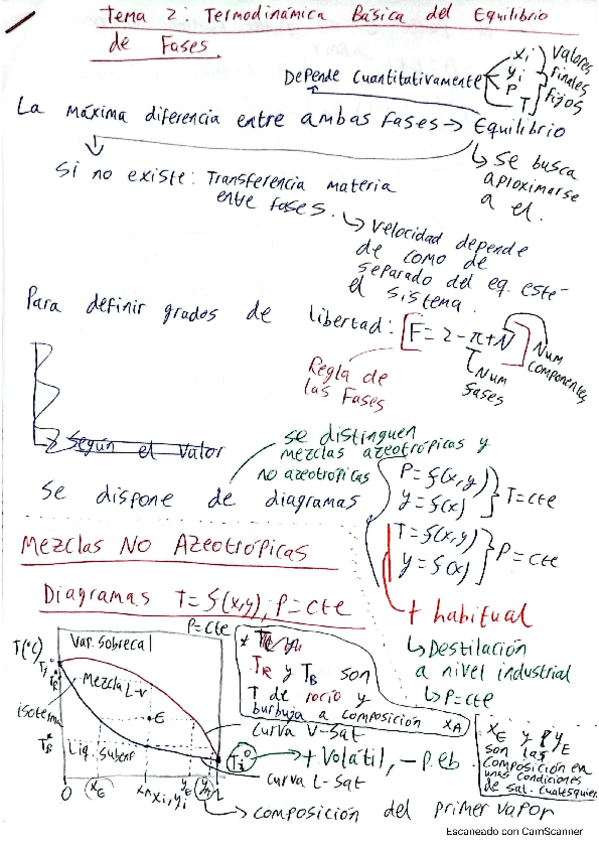 Tema 2: Termodinámica Básica del Equilibrio
de Fases.
Depende Cuantitativamente
xi
yi
P
T
Valores
finales
fijos
La máxima diferencia entre ambas fases → Equilibrio
Se busca
aproximarse
a el.
Si no existe: Transferencia materia
entre fases.
Velocidad depende
de como de
separado del eq. este-
el sistema.
Para definir grados de libertad: F = 2 - π + N
Num
componentes
Num
fases
Regla de
las Fases
Según el valor
Se distinguen
mezclas azeotrópicas y
no azeotrópicas
Se dispone de diagramas
P = f(x,y)
y = f(x)
T = cte
T = f(x,y)
y = f(x)
P = cte
Mezclas No Azeotrópicas
+ habitual
Destilación
a nivel industrial
P = cte
Diagramas T = f(x,y), P = cte
P = cte
T(°C)
Vap. Sobrecal
Mezcla L-V
isoterma
E
Liq. Subenf
TR y TB son
T de rocío y
burbuja a composición xA
Curva V-Sat
+ Volátil, - P. eb
Curva L-Sat
0
xE
xA
xi, yi
yE
1
composición del primer vapor
xE y yE
son las
composición en
unas condiciones
de sat. cualesquier
Escaneado con CamScanner